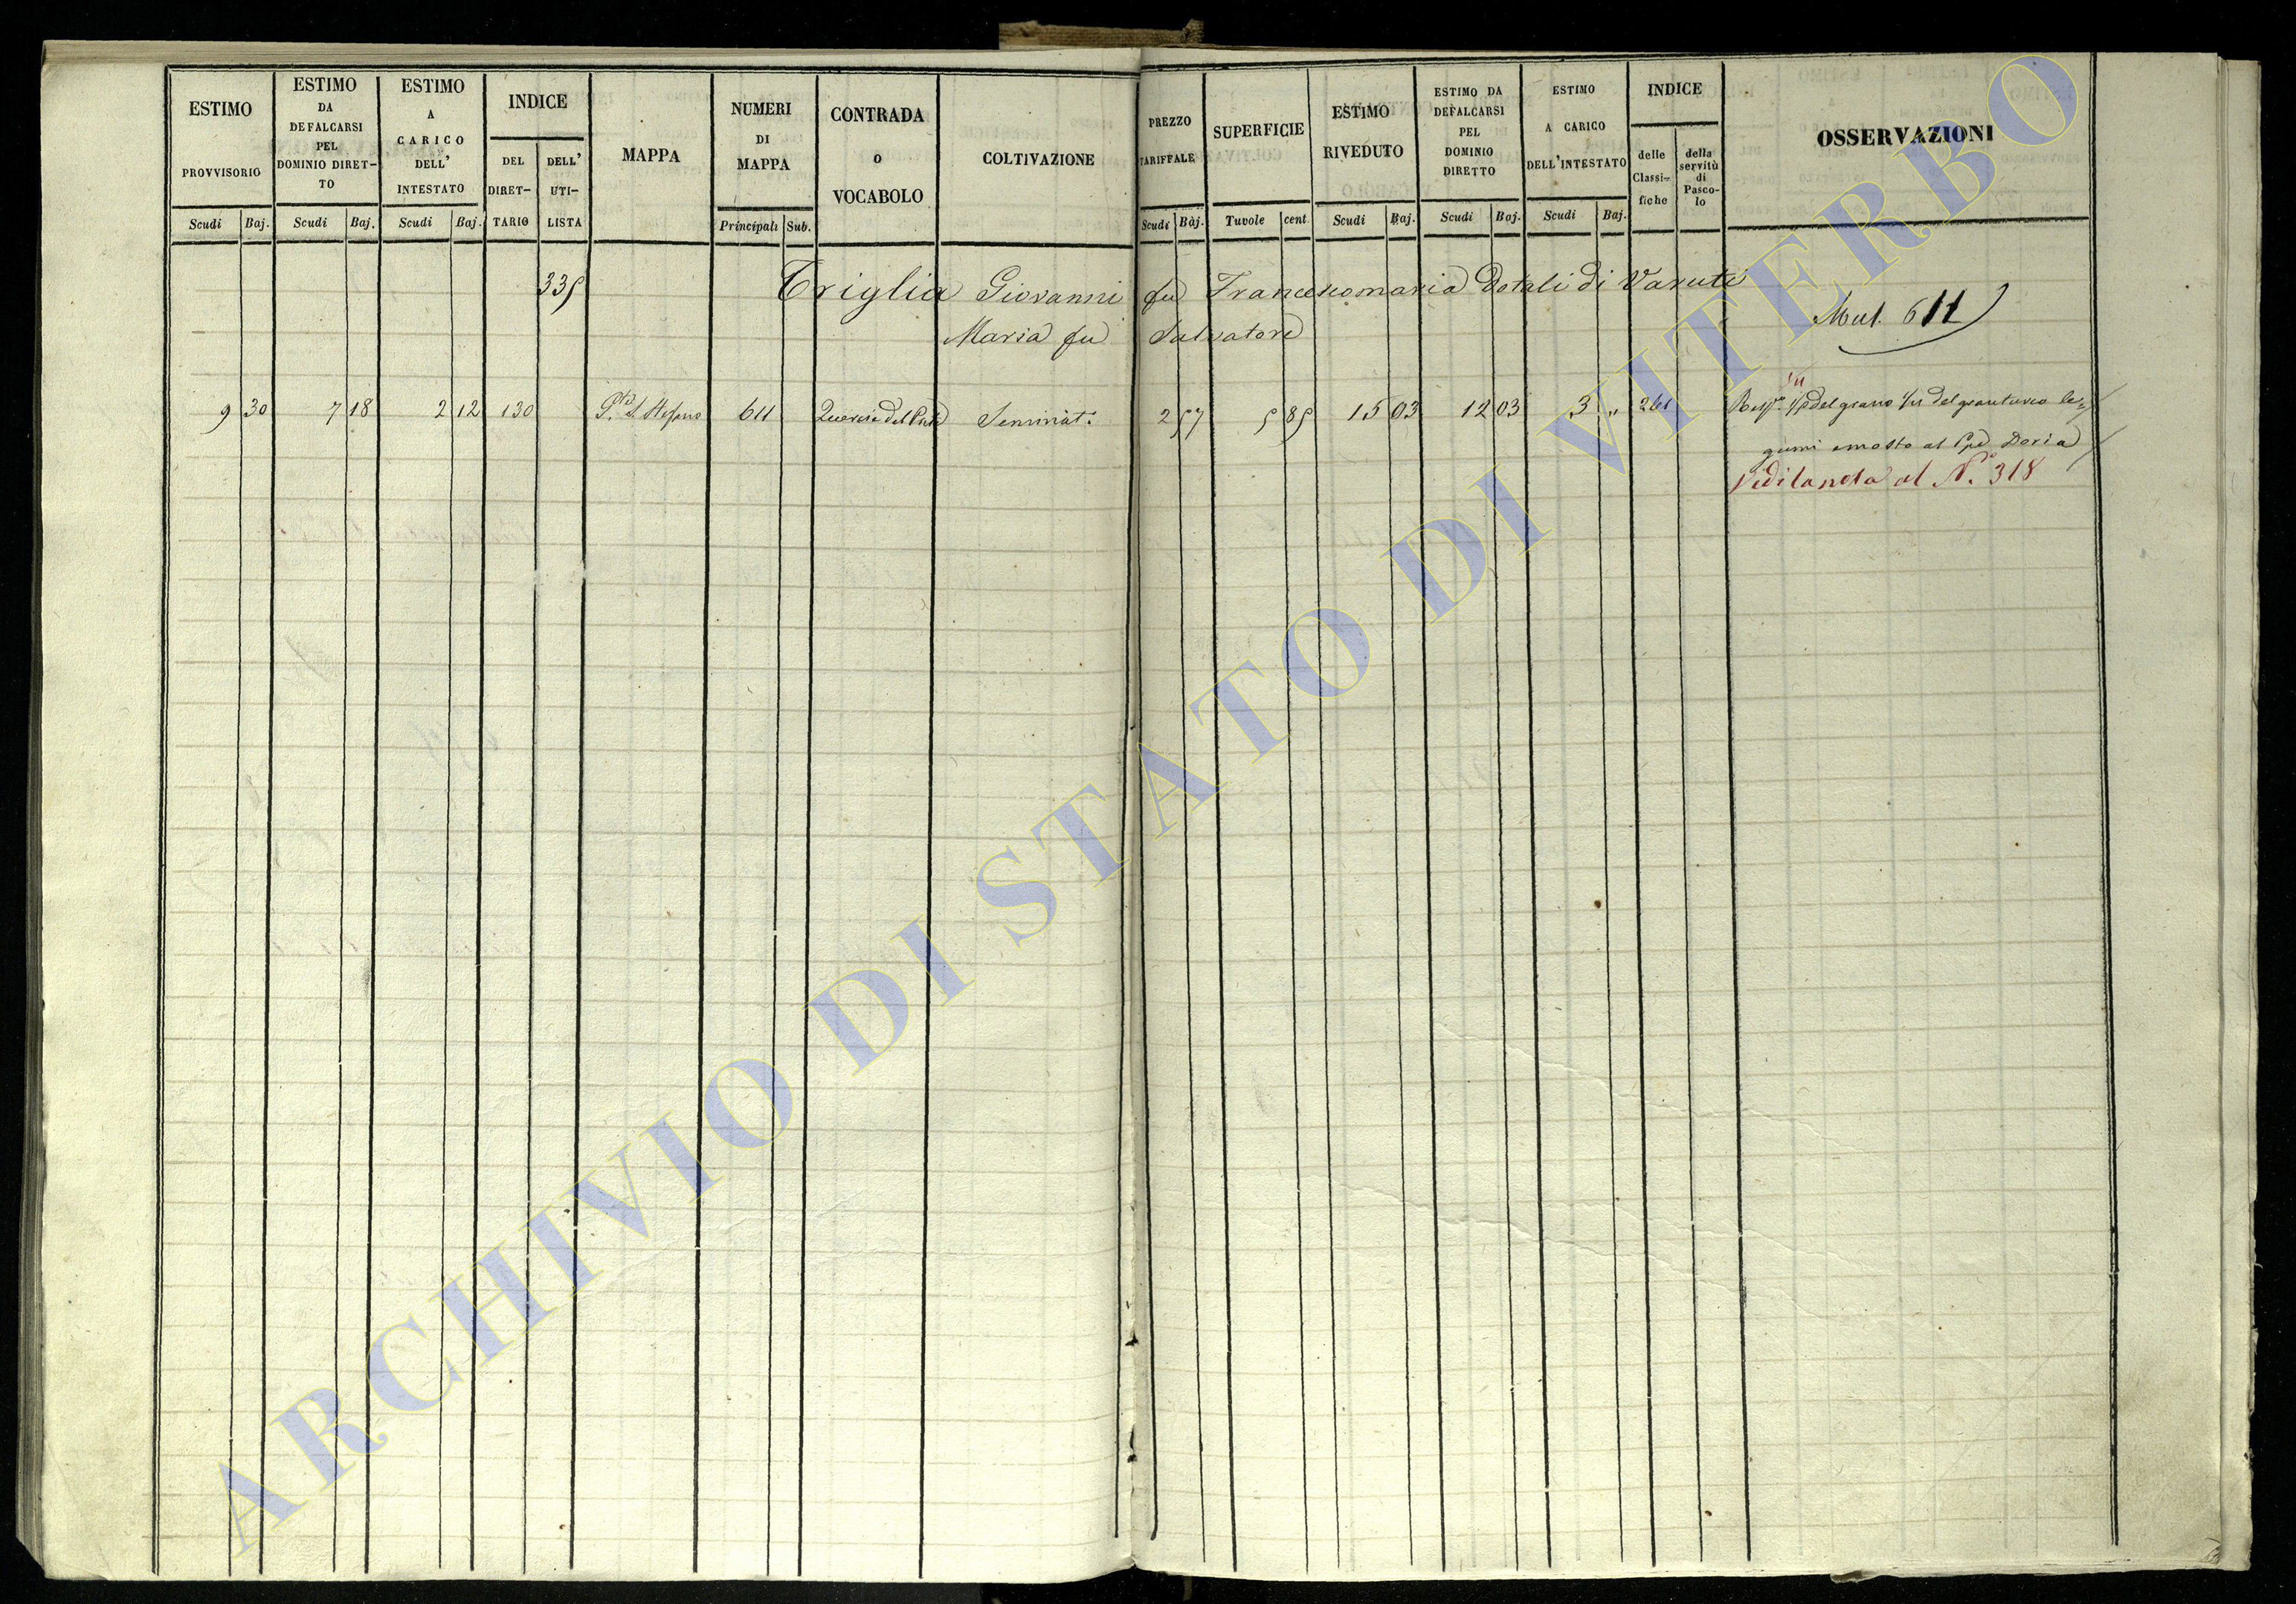 ESTIMO
PROVVISORIO
Scudi Baj.
ESTIMO
DA
DEFALCARSI
PEL
DOMINIO DIRET-
TO
Scudi Baj.
ESTIMO
A
CARICO
DELL'
INTESTATO
Scudi Baj.
INDICE
DEL
DIRET-
TARIO
DELL'
UTI-
LISTA
MAPPA
NUMERI
DI
MAPPA
Principali Sub.
CONTRADA
O
VOCABOLO
COLTIVAZIONE
PREZZO
TARIFFALE
Scudi Baj.
SUPERFICIE
Tuvole cent.
ESTIMO
RIVEDUTO
Scudi Baj.
ESTIMO DA
DEFALCARSI
PEL
DOMINIO
DIRETTO
Scudi Baj.
ESTIMO
A CARICO
DELL'INTESTATO
Scudi Baj.
INDICE
delle
Classi-
fiche
della
servitù
di
Pasco-
lo
OSSERVAZIONI
335 Triglia Giovanni fu Francescomaria Dotali di Varuti
Mut. 611
Maria fu Salvatore
9 30 7 18 2 12 130 611 Seminat. 2 57 5 85 15 03 12 03 3 " 261 del grano del granturco le=
gumi e mosto al Doria
Vedi la nota al N.º 318
ARCHIVIO DI STATO DI VITERBO